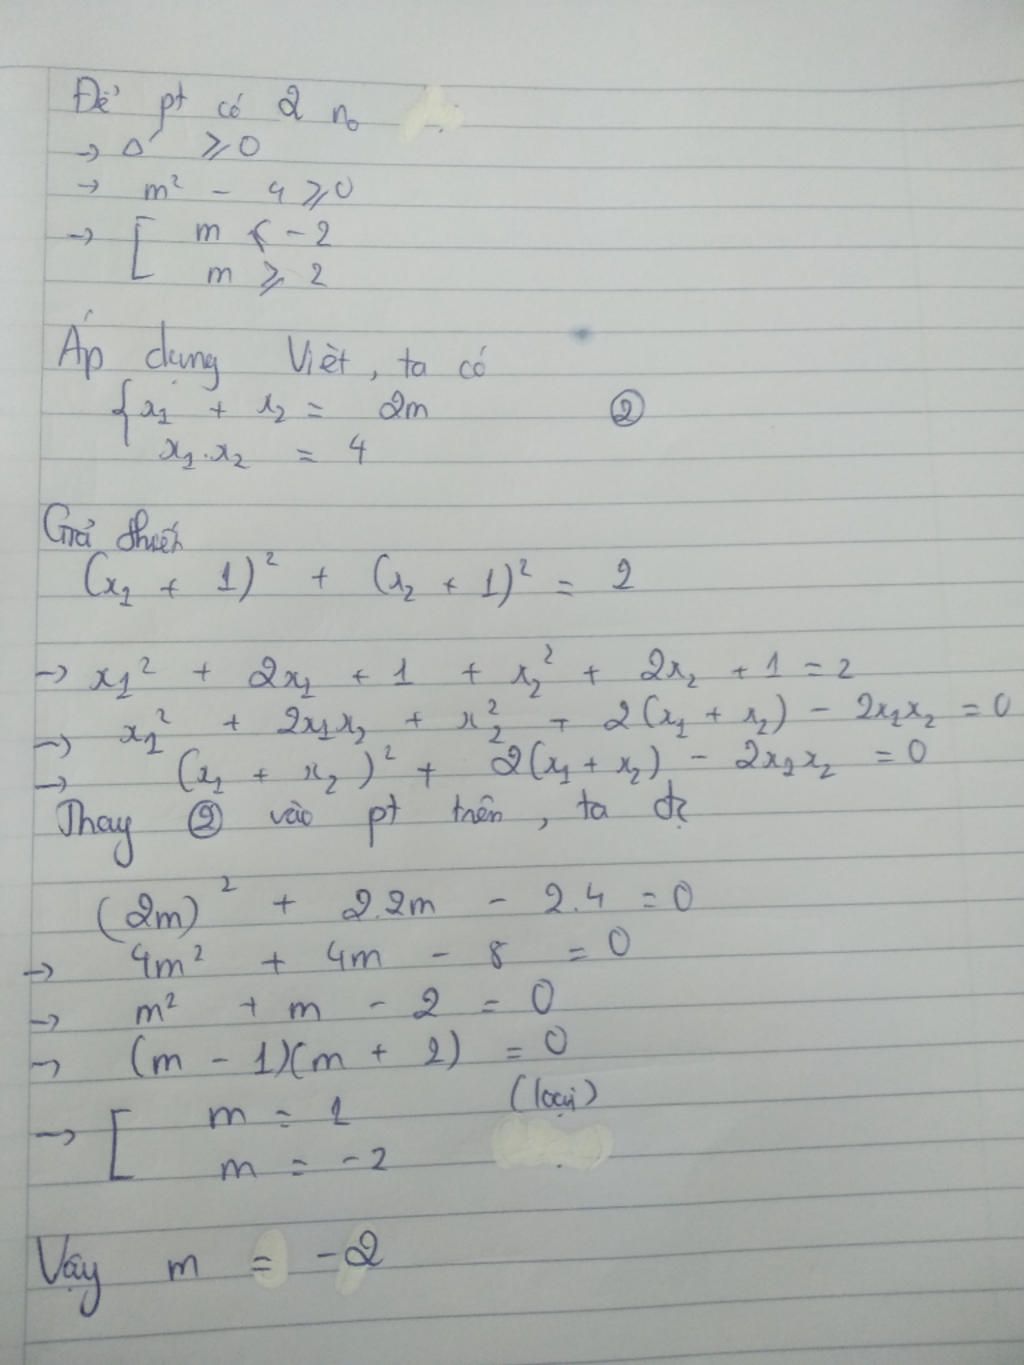 Để pt có 2 no
→ Δ' ⩾ 0
→ m² - 4 ⩾ 0
→ [ m ⩽ -2
m ⩾ 2
Áp dụng Vièt, ta có
{ x₁ + x₂ = 2m ②
x₁.x₂ = 4
Giả thiết
(x₁ + 1)² + (x₂ + 1)² = 2
→ x₁² + 2x₁ + 1 + x₂² + 2x₂ + 1 = 2
→ x₁² + 2x₁x₂ + x₂² + 2(x₁ + x₂) - 2x₁x₂ = 0
→ (x₁ + x₂)² + 2(x₁ + x₂) - 2x₁x₂ = 0
Thay ② vào pt trên, ta đc
(2m)² + 2.2m - 2.4 = 0
→ 4m² + 4m - 8 = 0
→ m² + m - 2 = 0
→ (m - 1)(m + 2) = 0
→ [ m = 1 (loại)
m = -2
Vậy m = -2